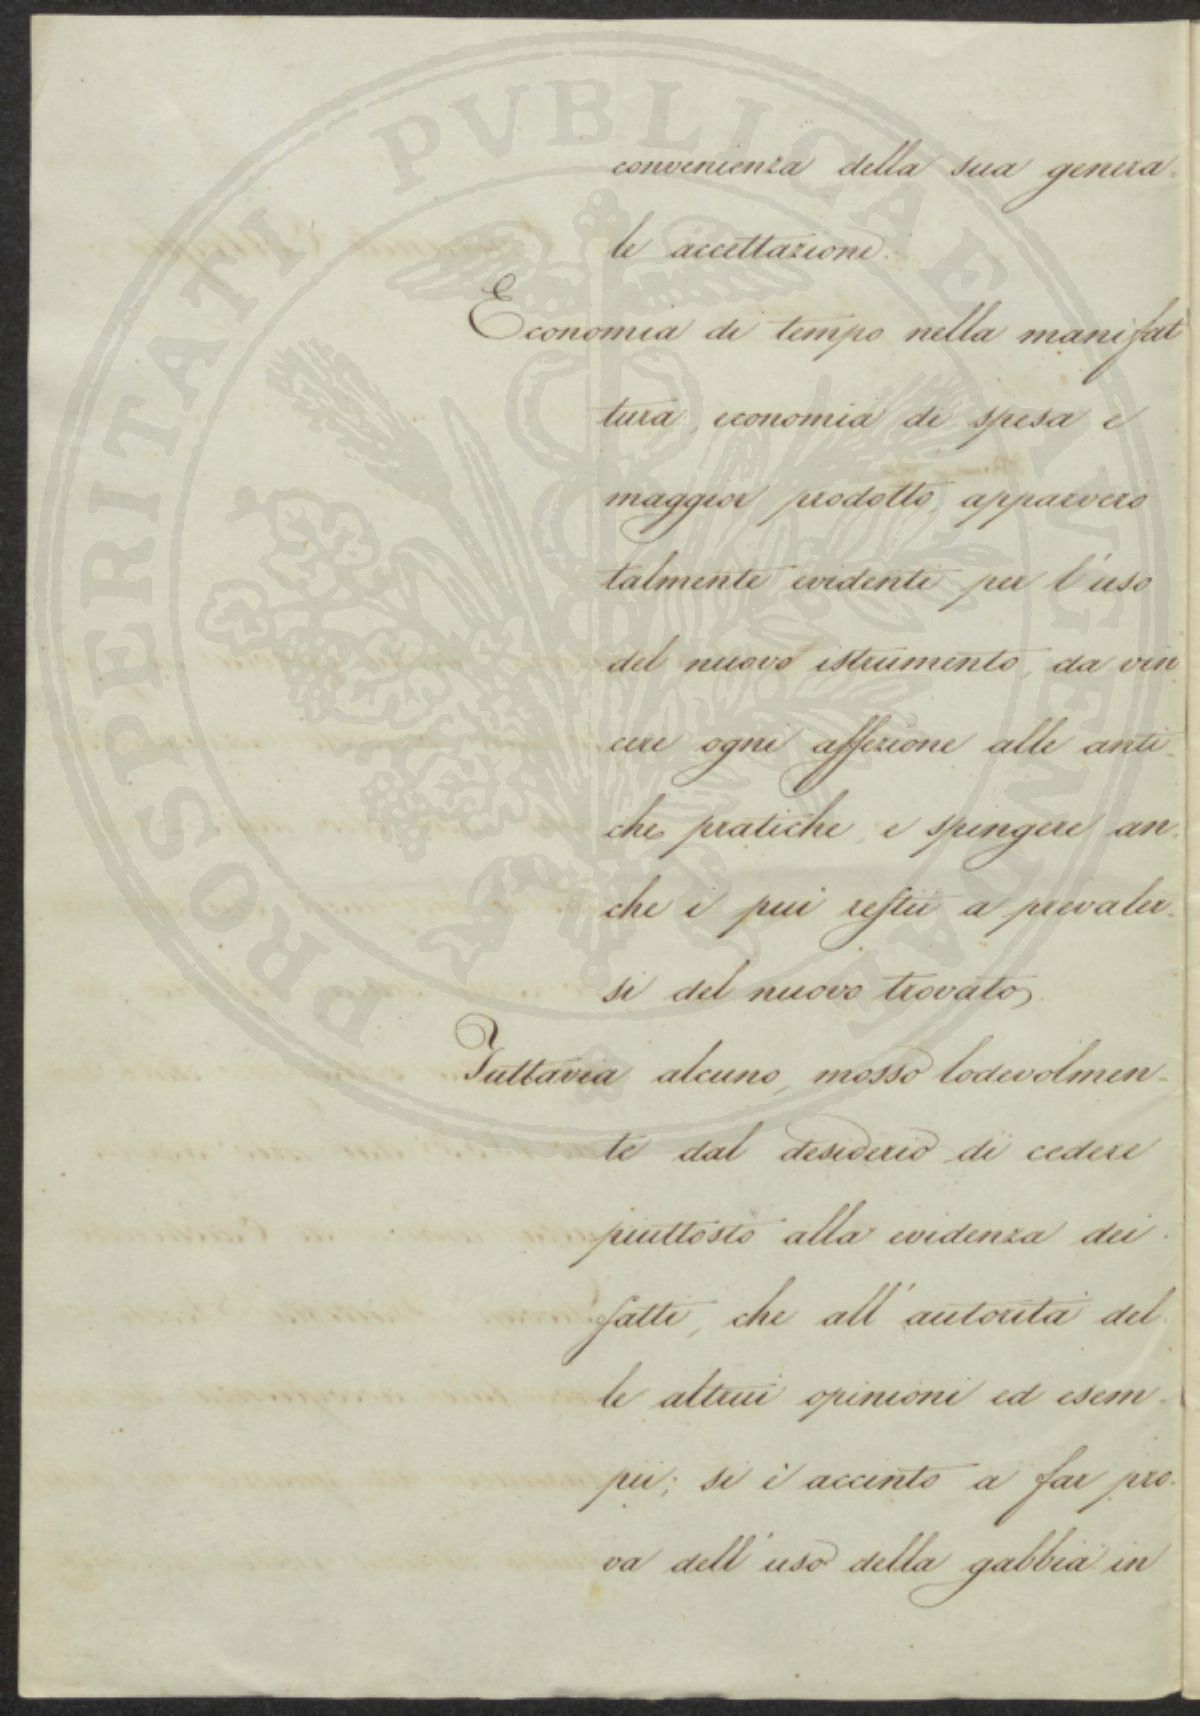 convenienza della sua genera-
le accettazione.
Economia di tempo nella manifat
tura, economia di spesa e
maggior prodotto, apparvero
talmente evidenti per l'uso
del nuovo istrumento, da vin
cere ogni affezione alle anti-
che pratiche, e spingere an-
che i più restii a prevaler-
si del nuovo trovato.
Tuttavia alcuno, mosso lodevolmen-
te dal desiderio di cedere
piuttosto alla evidenza dei
fatti, che all'autorità del-
le altrui opinioni ed esem-
pii; si è accinto a far pro-
va dell'uso della gabbia in
PROSPERITATI PVBLICAE AVGENDAE